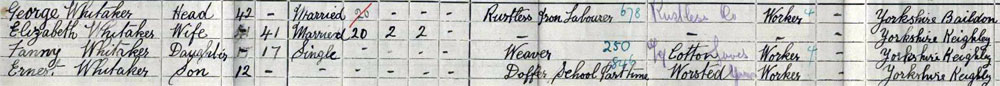 George Whitaker Head 42 - Married 20 - - - Rustless Iron Labourer 678 Rustless Co Worker 4 - Yorkshire Baildon
Elizabeth Whitaker Wife - 41 Married 20 2 2 - - - Yorkshire Keighley
Fanny Whitaker Daughter - 17 Single Weaver 250 Cotton Worker 4 - Yorkshire Keighley
Ernest Whitaker Son 12 - Doffer, School Part time Worsted Worker - Yorkshire Keighley